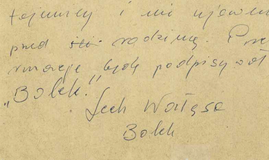 tajemnicy i nie ujawni
przed nie rodziną. Prze
rmacje będę podpisywał
„Bolek".
Lech Wałęsa
Bolek